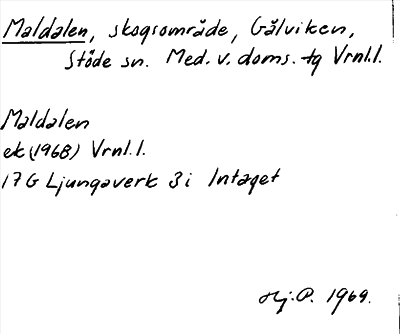 Maldalen, skogsområde, Gålviken,
Stöde sn. Med. v. doms. tg Vrnl.l.
Maldalen
ek (1968) Vrnl.l.
17 G Ljungaverk 3 i Intaget
Hj.P. 1969.